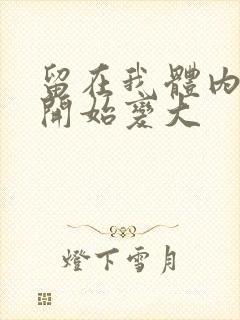 留在我體内
開始變大
燈下雪月